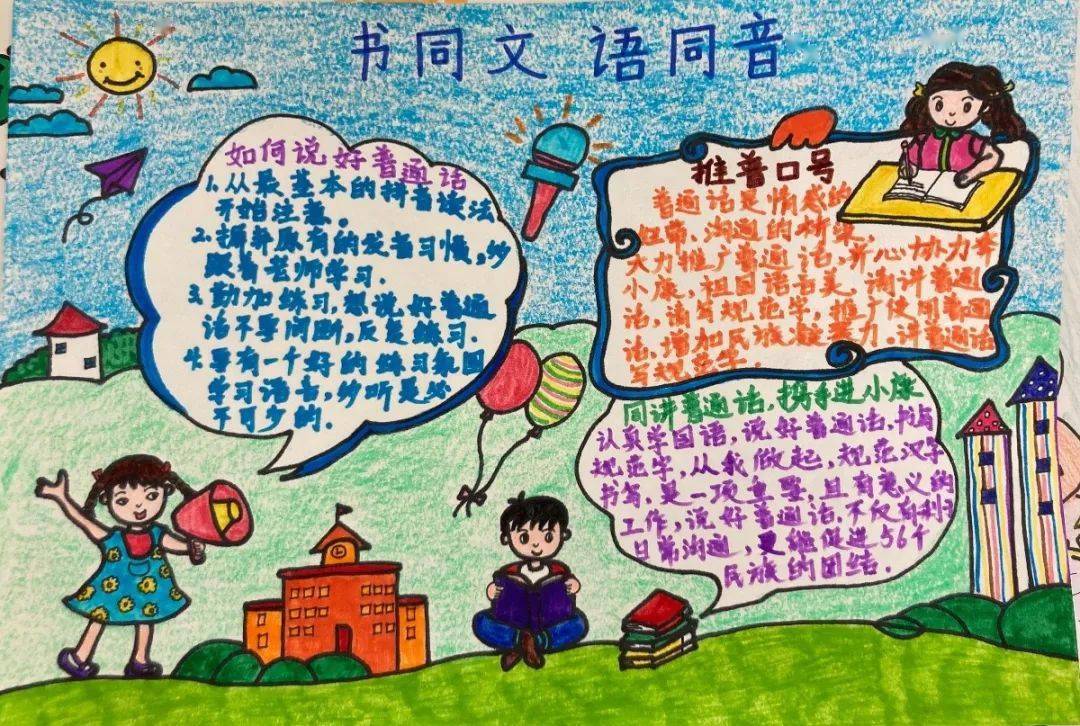 书同文 语同音
如何说好普通话
1.从最基本的拼音读法
开始注意。
2.摒弃原有的发音习惯,多
跟着老师学习.
3.勤加练习,想说好普通
话不要间断,反复练习.
4.要有一个好的练习氛围
学习语言,多听是必
不可少的.
推普口号
普通话是情感的
纽带、沟通的桥梁
大力推广普通话,齐心协力奔
小康,祖国语言美,请讲普通
话,请写规范字,推广使用普通
话、增加民族凝聚力.讲普通话
写规范字.
同讲普通话,携手进小康
认真学国语,说好普通话,书写
规范字,从我做起,规范汉字
书写,是一项重要,且有意义的
工作,说好普通话.不仅有利于
日常沟通,更能促进56个
民族的团结.